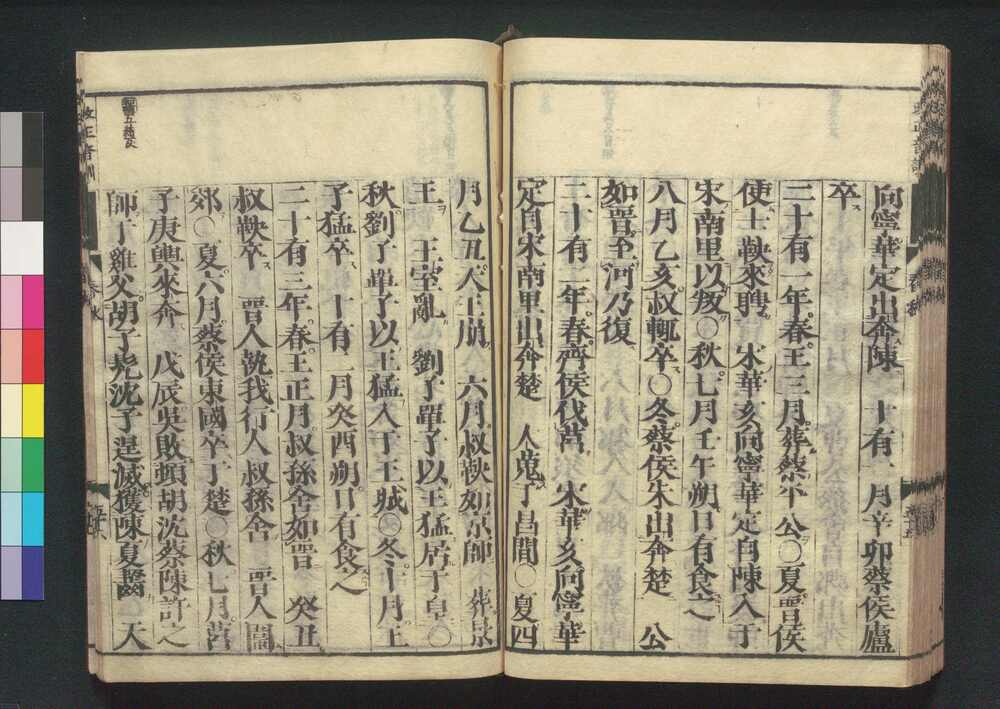 向寧華定出奔陳 十有一月辛卯蔡侯廬
卒
二十有一年春王三月葬蔡平公○夏晉侯
使士鞅來聘 宋華亥向寧華定自陳入于
宋南里以叛○秋七月壬午朔日有食之
八月乙亥叔輒卒○冬蔡侯朱出奔楚 公
如晉至河乃復
二十有二年春齊侯伐莒 宋華亥向寧華
定自宋南里出奔楚 大蒐于昌間○夏四
月乙丑天王崩 六月叔鞅如京師 葬景
王 王室亂 劉子單子以王猛居于皇○
秋劉子單子以王猛入于王城○冬十月王
子猛卒 十有二月癸酉朔日有食之
二十有三年春王正月叔孫舍如晉 癸丑
叔鞅卒 晉人執我行人叔孫舍 晉人圍
郊○夏六月蔡侯東國卒于楚○秋七月莒
子庚輿來奔 戊辰吳敗頓胡沈蔡陳許之
師于雞父胡子髡沈子逞滅獲陳夏齧 天
改正音訓